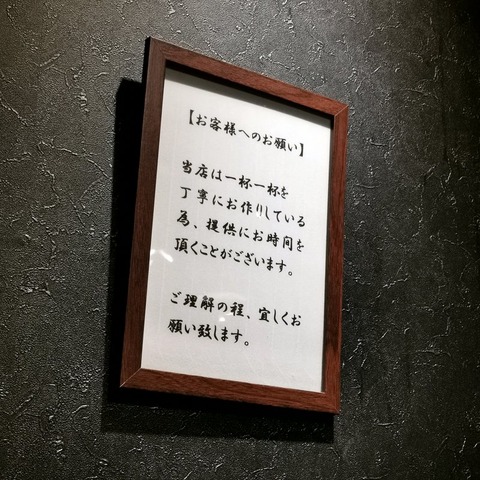 【お客様へのお願い】
当店は一杯一杯を
丁寧にお作りしている
為、提供にお時間を
頂くことがございます。
ご理解の程、宜しくお
願い致します。